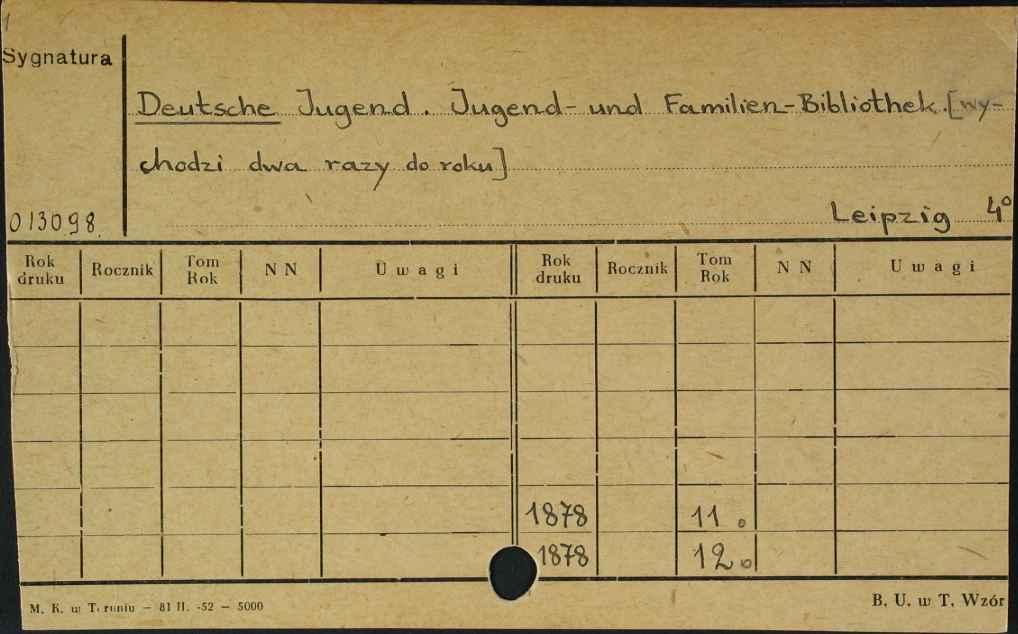 Sygnatura
Deutsche Jugend. Jugend- und Familien-Bibliothek. [wy-
chodzi dwa razy do roku]
013098.
Leipzig 4°
Rok druku Rocznik Tom Rok N N Uwagi Rok druku Rocznik Tom Rok N N Uwagi
1878 11.
1878 12.
M. K. w Toruniu – 81 II. -52 – 5000
B. U. w T. Wzór